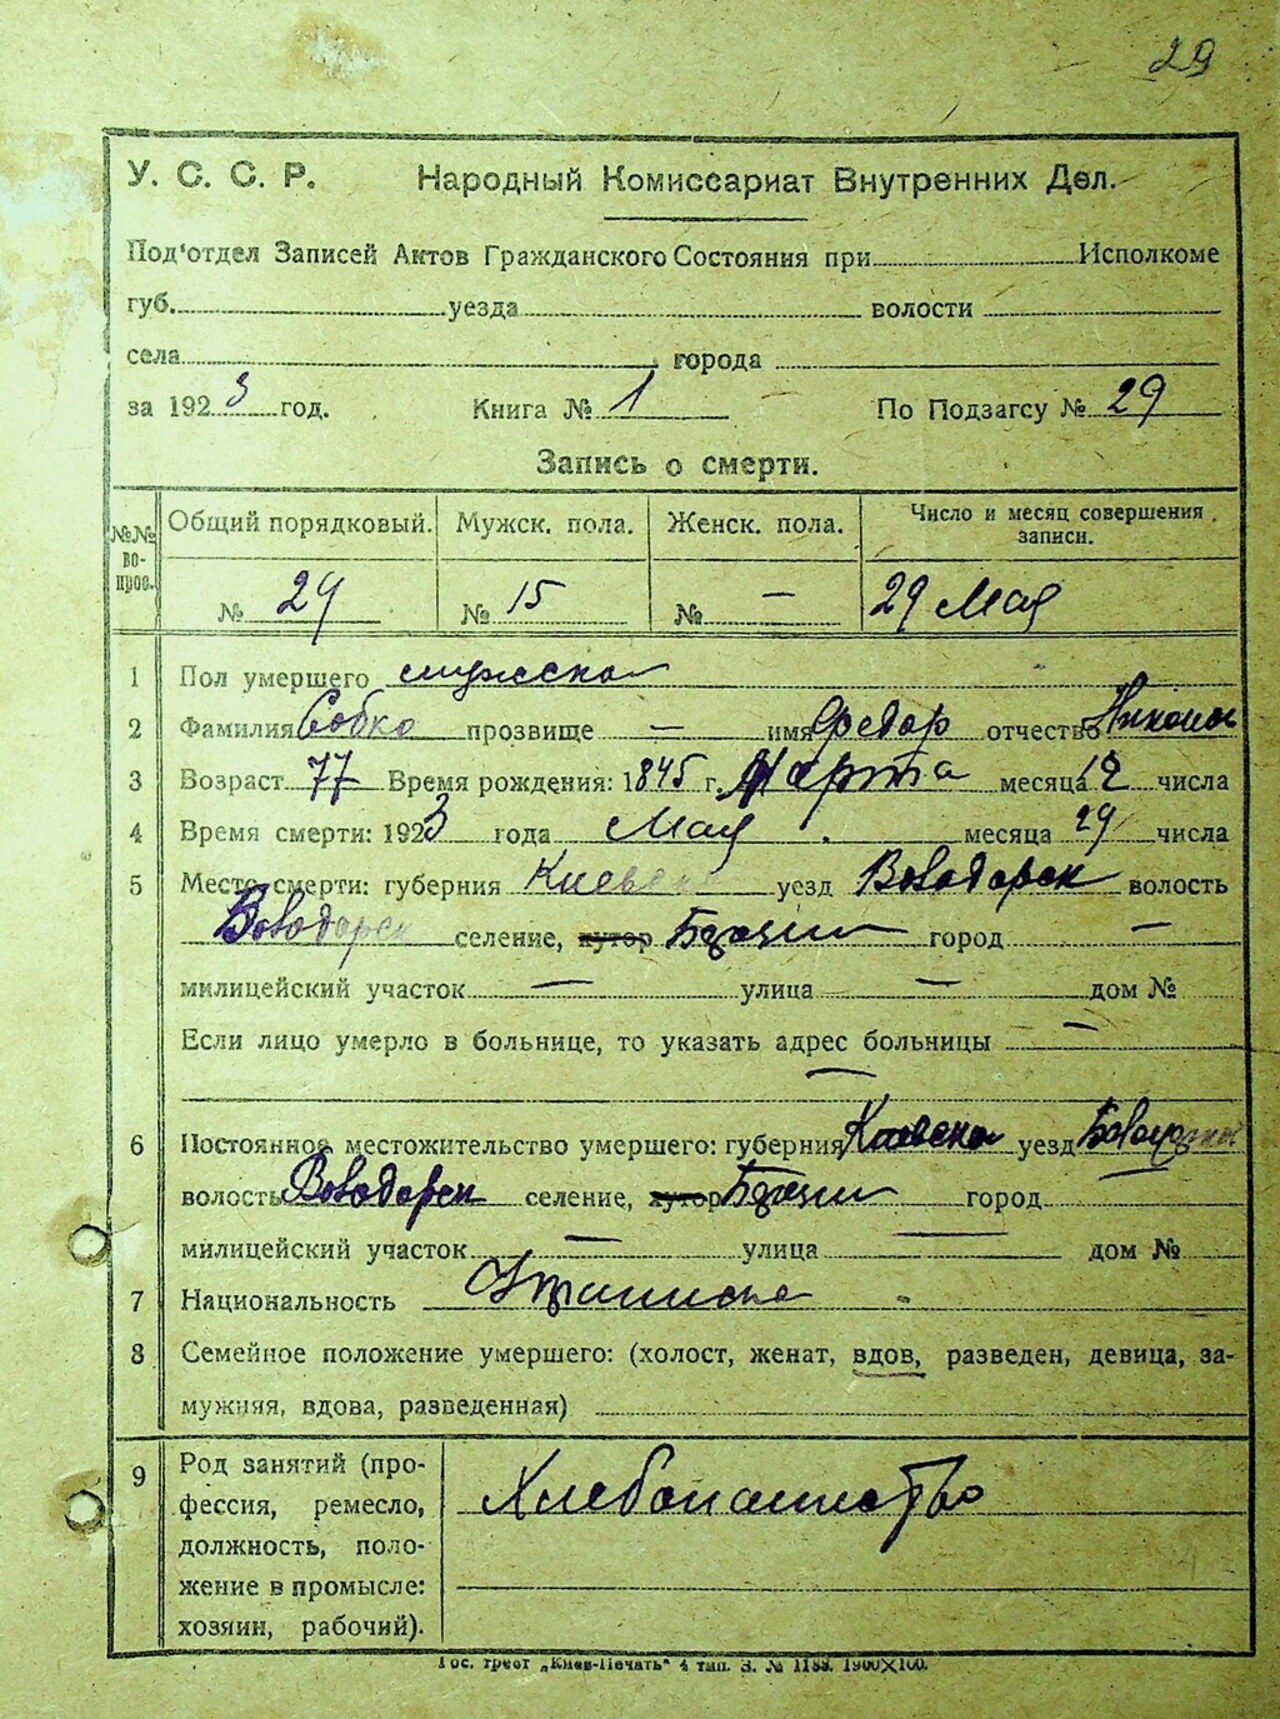 29
У. С. С. Р. Народный Комиссариат Внутренних Дел.
Под'отдел Записей Актов Гражданского Состояния при Исполкоме
губ. уезда волости
села города
за 1923 год. Книга № 1 По Подзагсу № 29
Запись о смерти.
№№ во-прос. Общий порядковый. Мужск. пола. Женск. пола. Число и месяц совершения записи.
№ 29 № 15 № — 29 Мая
1 Пол умершего мужско
2 Фамилия Собко прозвище — имя Федор отчество
3 Возраст 77 Время рождения: 1845 г. Марта месяца 12 числа
4 Время смерти: 1923 года Мая месяца 29 числа
5 Место смерти: губерния Киевск уезд волость
селение, хутор город —
милицейский участок — улица — дом №
Если лицо умерло в больнице, то указать адрес больницы —
—
6 Постоянное местожительство умершего: губерния Киевска уезд
волость селение, хутор город —
милицейский участок — улица — дом №
7 Национальность
8 Семейное положение умершего: (холост, женат, вдов, разведен, девица, за-
мужняя, вдова, разведенная)
9 Род занятий (про- Хлебопашество
фессия, ремесло,
должность, поло-
жение в промысле:
хозяин, рабочий).
Гос. трест „Киев-Печать" 4 тип. З. № 1188. 1900X100.